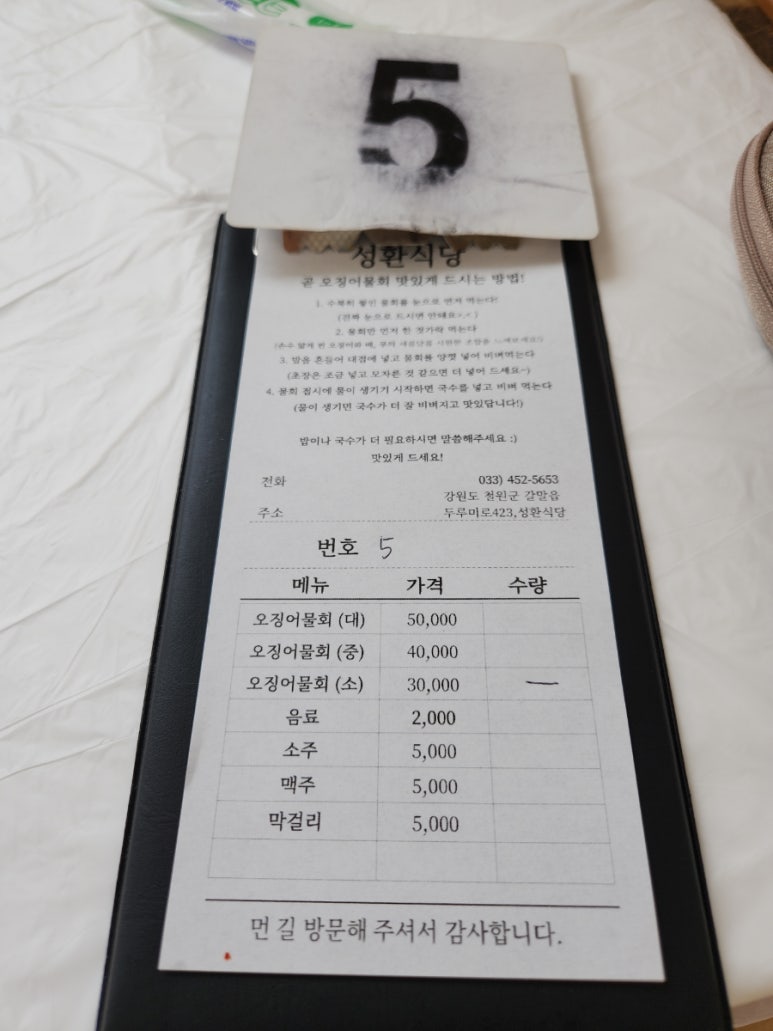 5
성환식당
곧 오징어물회 맛있게 드시는 방법!
1. 수북히 쌓인 물회를 눈으로 먼저 먹는다!
(진짜 눈으로 드시면 안돼요>.<)
2. 물회만 먼저 한 젓가락 먹는다
(손수 얇게 썬 오징어와 배, 무의 새콤달콤 시원한 초장을 느껴보세요!)
3. 밥을 흔들어 대접에 넣고 물회를 양껏 넣어 비벼먹는다
(초장은 조금 넣고 모자른 것 같으면 더 넣어 드세요~)
4. 물회 접시에 물이 생기기 시작하면 국수를 넣고 비벼 먹는다
(물이 생기면 국수가 더 잘 비벼지고 맛있답니다!)
밥이나 국수가 더 필요하시면 말씀해주세요 :)
맛있게 드세요!
전화 033) 452-5653
강원도 철원군 갈말읍
주소 두루미로423,성환식당
번호 5
메뉴 가격 수량
오징어물회 (대) 50,000
오징어물회 (중) 40,000
오징어물회 (소) 30,000 一
음료 2,000
소주 5,000
맥주 5,000
막걸리 5,000
먼 길 방문해 주셔서 감사합니다.